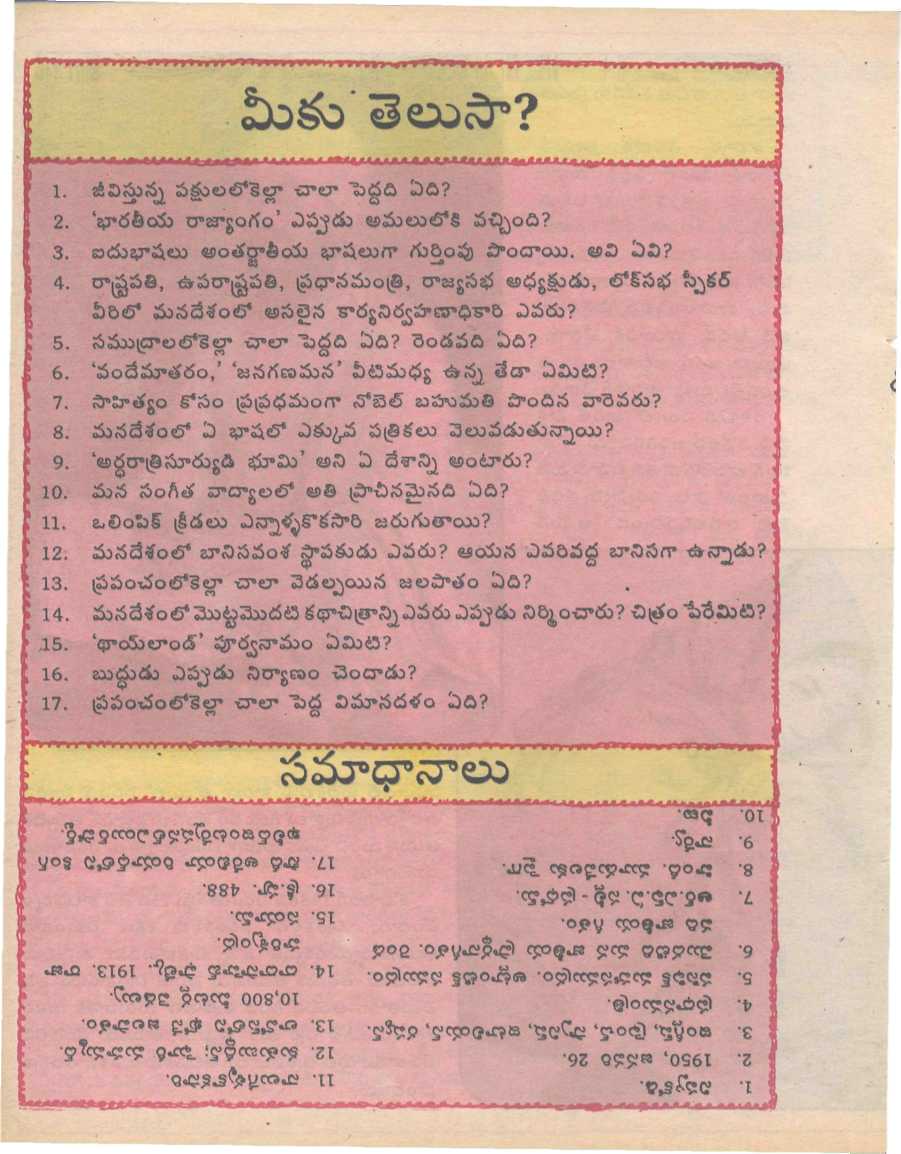 మీకు తెలుసా?
1. జీవిస్తున్న పక్షులలోకెల్లా చాలా పెద్దది ఏది?
2. ‘భారతీయ రాజ్యాంగం’ ఎప్పుడు అమలులోకి వచ్చింది?
3. ఐదుభాషలు అంతర్జాతీయ భాషలుగా గుర్తింపు పొందాయి. అవి ఏవి?
4. రాష్ట్రపతి, ఉపరాష్ట్రపతి, ప్రధానమంత్రి, రాజ్యసభ అధ్యక్షుడు, లోక్‌సభ స్పీకర్
వీరిలో మనదేశంలో అసలైన కార్యనిర్వహణాధికారి ఎవరు?
5. సముద్రాలలోకెల్లా చాలా పెద్దది ఏది? రెండవది ఏది?
6. ‘వందేమాతరం,’ ‘జనగణమన’ వీటిమధ్య ఉన్న తేడా ఏమిటి?
7. సాహిత్యం కోసం ప్రప్రధమంగా నోబెల్ బహుమతి పొందిన వారెవరు?
8. మనదేశంలో ఏ భాషలో ఎక్కువ పత్రికలు వెలువడుతున్నాయి?
9. ‘అర్ధరాత్రిసూర్యుడి భూమి’ అని ఏ దేశాన్ని అంటారు?
10. మన సంగీత వాద్యాలలో అతి ప్రాచీనమైనది ఏది?
11. ఒలింపిక్ క్రీడలు ఎన్నాళ్ళకొకసారి జరుగుతాయి?
12. మనదేశంలో బానిసవంశ స్థాపకుడు ఎవరు? ఆయన ఎవరివద్ద బానిసగా ఉన్నాడు?
13. ప్రపంచంలోకెల్లా చాలా వెడల్పయిన జలపాతం ఏది?
14. మనదేశంలో మొట్టమొదటి కథాచిత్రాన్ని ఎవరు ఎప్పుడు నిర్మించారు? చిత్రం పేరేమిటి?
15. ‘థాయ్‌లాండ్’ పూర్వనామం ఏమిటి?
16. బుద్ధుడు ఎప్పుడు నిర్యాణం చెందాడు?
17. ప్రపంచంలోకెల్లా చాలా పెద్ద విమానదళం ఏది?
సమాధానాలు
1. నిప్పుకోడి.
2. 1950, జనవరి 26.
3. ఇంగ్లీష్, ఫ్రెంచ్, స్పానిష్, ఇటాలియన్, రష్యన్.
4. ప్రధానమంత్రి.
5. పసిఫిక్ మహాసముద్రం. అట్లాంటిక్ సముద్రం.
6. మొదటిది మన జాతీయ ప్రార్థనాగీతం. రెండ
వది జాతీయ గీతం.
7. ఆర్.ఎఫ్.ఏ. సల్లీ - ప్రుధోమ్.
8. హిందీ. మూడువేలకు పైగా.
9. నార్వే.
10. వీణ.
11. నాలుగేళ్ళకొకసారి.
12. కుతుబుద్దీన్; ఘోరీ మహమ్మద్.
13. లావోస్‌లోని ఖోనే జలపాతం.
10,800 మీటర్ల వెడల్పు.
14. దాదాసాహెబ్ ఫాల్కే. 1913. రాజా
హరిశ్చంద్ర.
15. సయామ్.
16. క్రీ.పూ. 488.
17. సౌదీ అరేబియా రియాద్‌లోని కింగ్
ఖలీద్ఇంటర్నేషనల్ఎయిర్‌పోర్ట్.